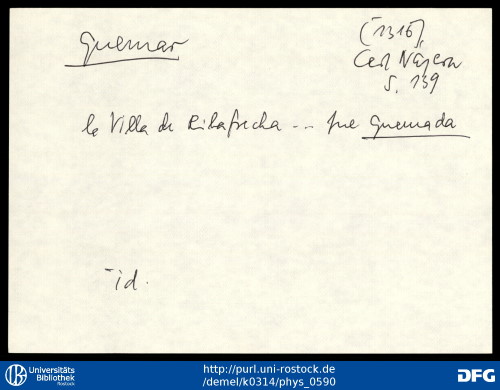 quemar
(1315),
Cest Nájera
S. 139
la Villa de Ribafrecha ... fue quemada
id.
Universitäts
Bibliothek
Rostock
http://purl.uni-rostock.de
/demel/k0314/phys_0590
DFG